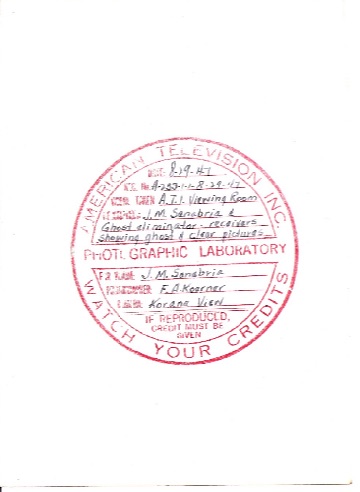 AMERICAN TELEVISION INC.
DATE: 8-19-47
NEG. No. A-283-1-1-8-29-47
WHERE TAKEN A.T.I. Viewing Room
J.M. Sanabria &
Ghost eliminator, receivers
showing ghost & clear pictures
PHOTOGRAPHIC LABORATORY
FILE NAME: J.M. Sanabria
F.A. Koerner
View
IF REPRODUCED,
CREDIT MUST BE
GIVEN
WATCH YOUR CREDITS